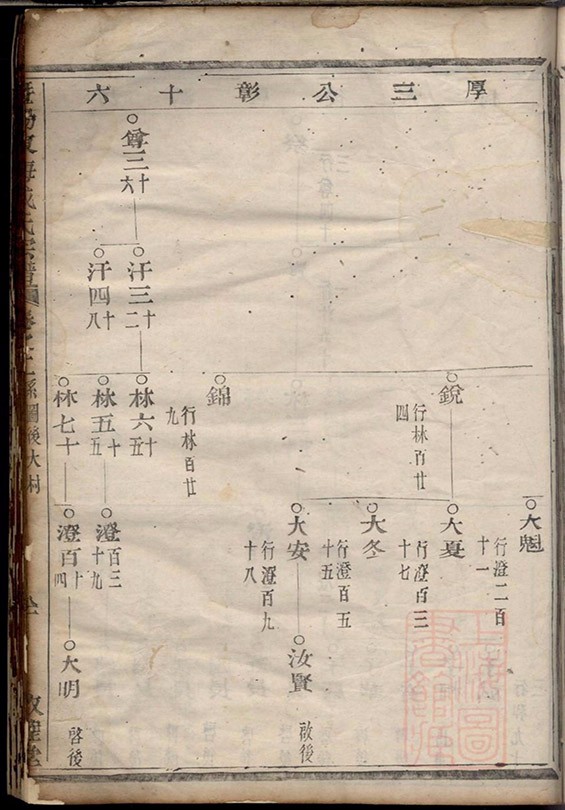 厚三公彰十六
大魁
行澄二百
十一
銳
行林百廿
四
大夏
行澄百三
十七
大冬
行澄百五
十五
大安
行澄百九
十八
汝賢
啟後
錦
行林百廿
九
尊三十六
汗三十二
林六十五
汗四十八
林五十五
澄百三十九
林七十
澄百十四
大明
啓後
氏宗譜
系圖後大村